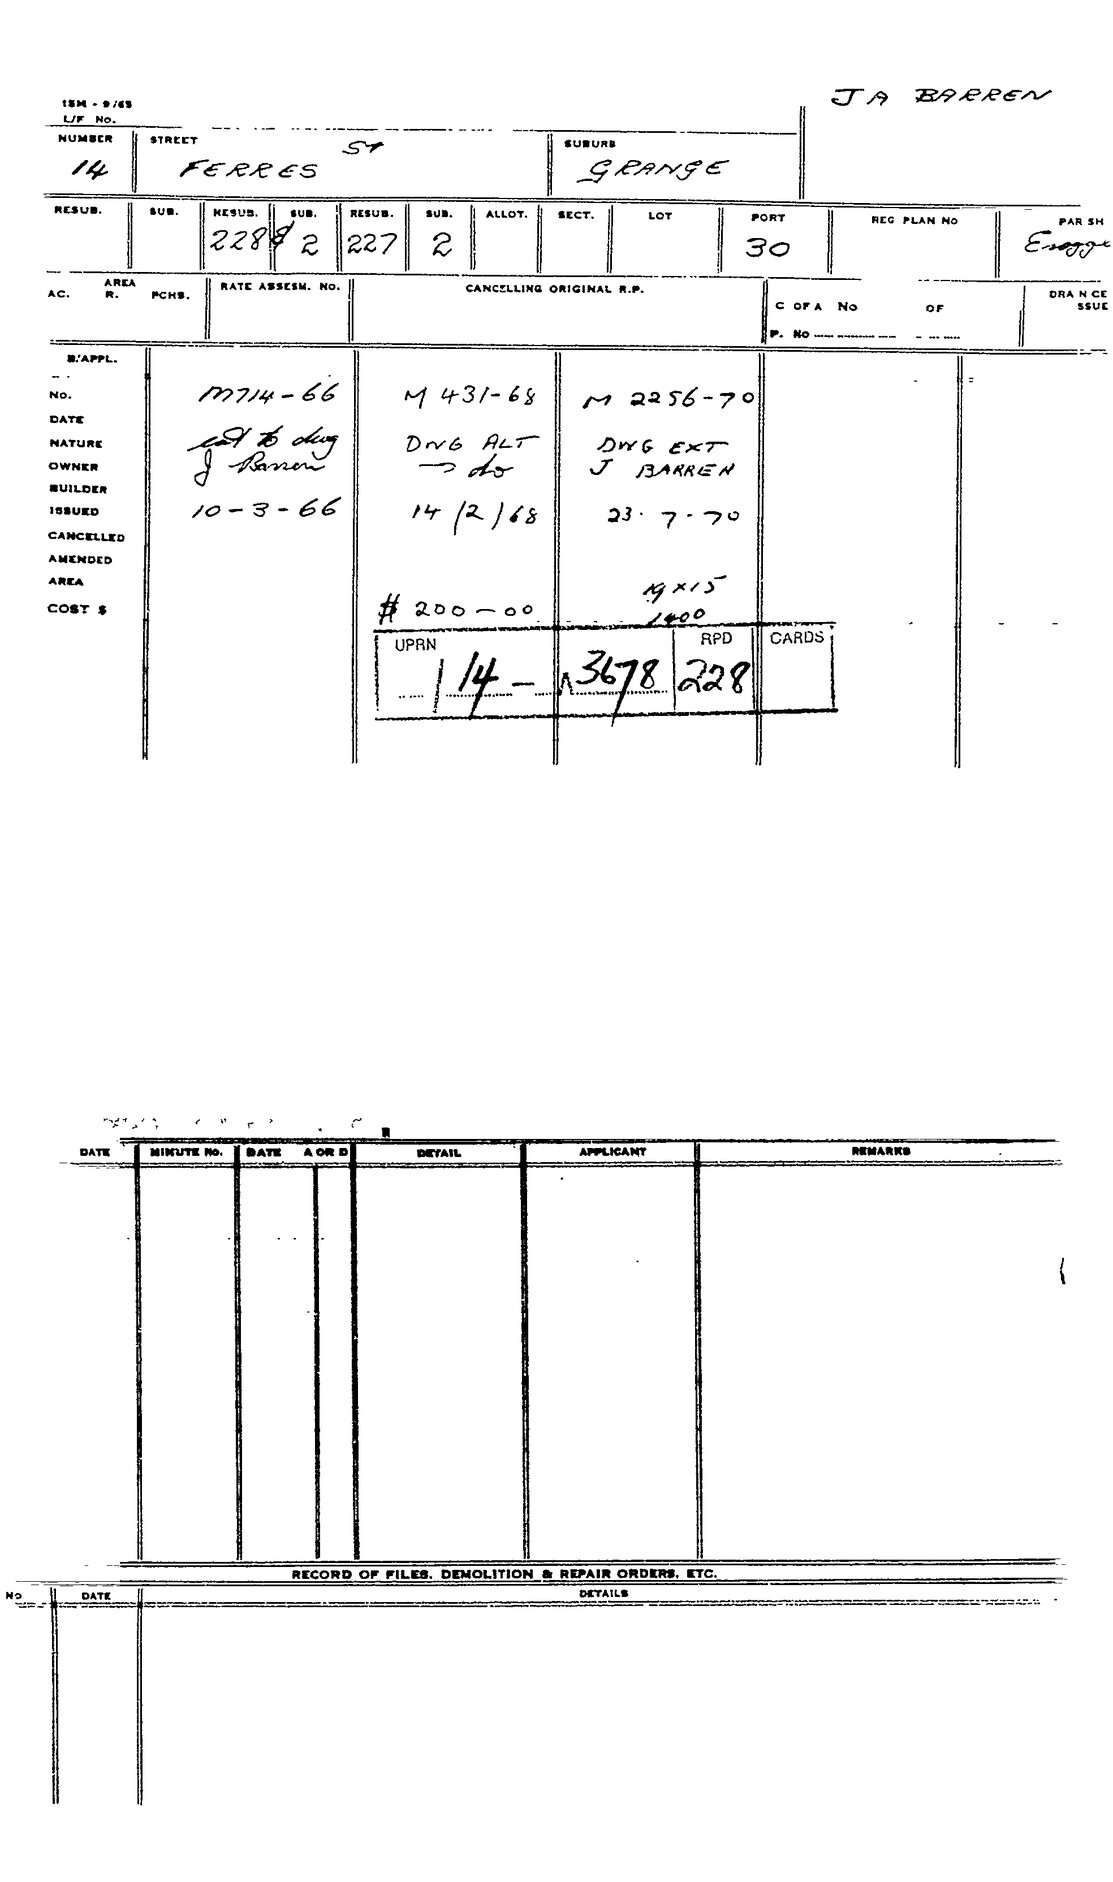 J A BARREN
18M - 9/65
L/F No.
NUMBER STREET SUBURB
14 FERRES St GRANGE
RESUB. SUB. RESUB. SUB. RESUB. SUB. ALLOT. SECT. LOT PORT REG PLAN No PARSH
228 & 2 227 2 30 Enogge
AREA RATE ASSESM. No. CANCELLING ORIGINAL R.P. DRA N CE
AC. R. PCHS. C OF A No OF SSUE
P. No
B/APPL.
No. M714-66 M 431-68 M 2256-70
DATE
NATURE ext to dwg DWG ALT DWG EXT
OWNER J Barren do J BARREN
BUILDER
ISSUED 10-3-66 14/2/68 23.7.70
CANCELLED
AMENDED
AREA
COST $ $ 200-00 1400
UPRN RPD CARDS
14 - 3678 228
DATE MINUTE No. DATE A OR D DETAIL APPLICANT REMARKS
RECORD OF FILES, DEMOLITION & REPAIR ORDERS, ETC.
No DATE DETAILS